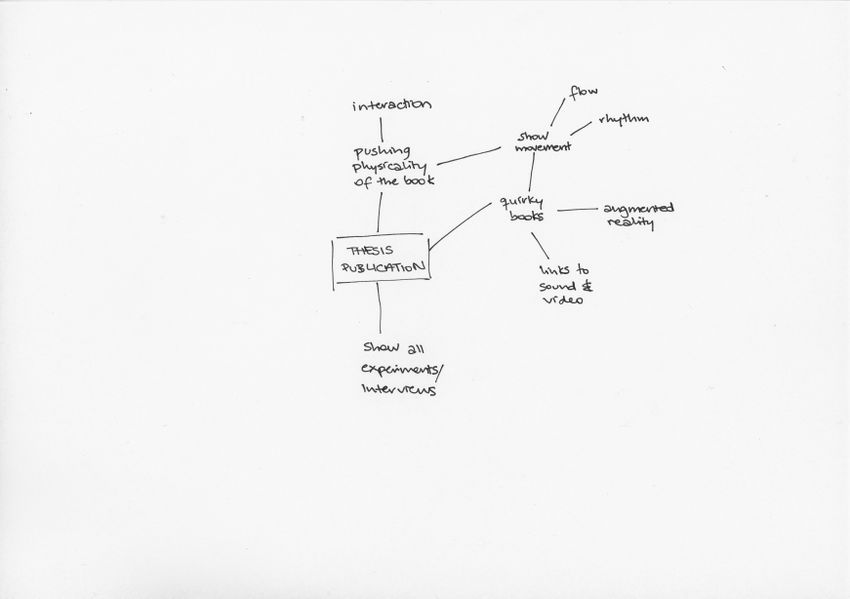 flow
interaction
rhythm
show
movement
pushing
physicality
of the book
quirky
books
augmented
reality
THESIS
PUBLICATION
links to
sound &
video
Show all
experiments/
Interviews